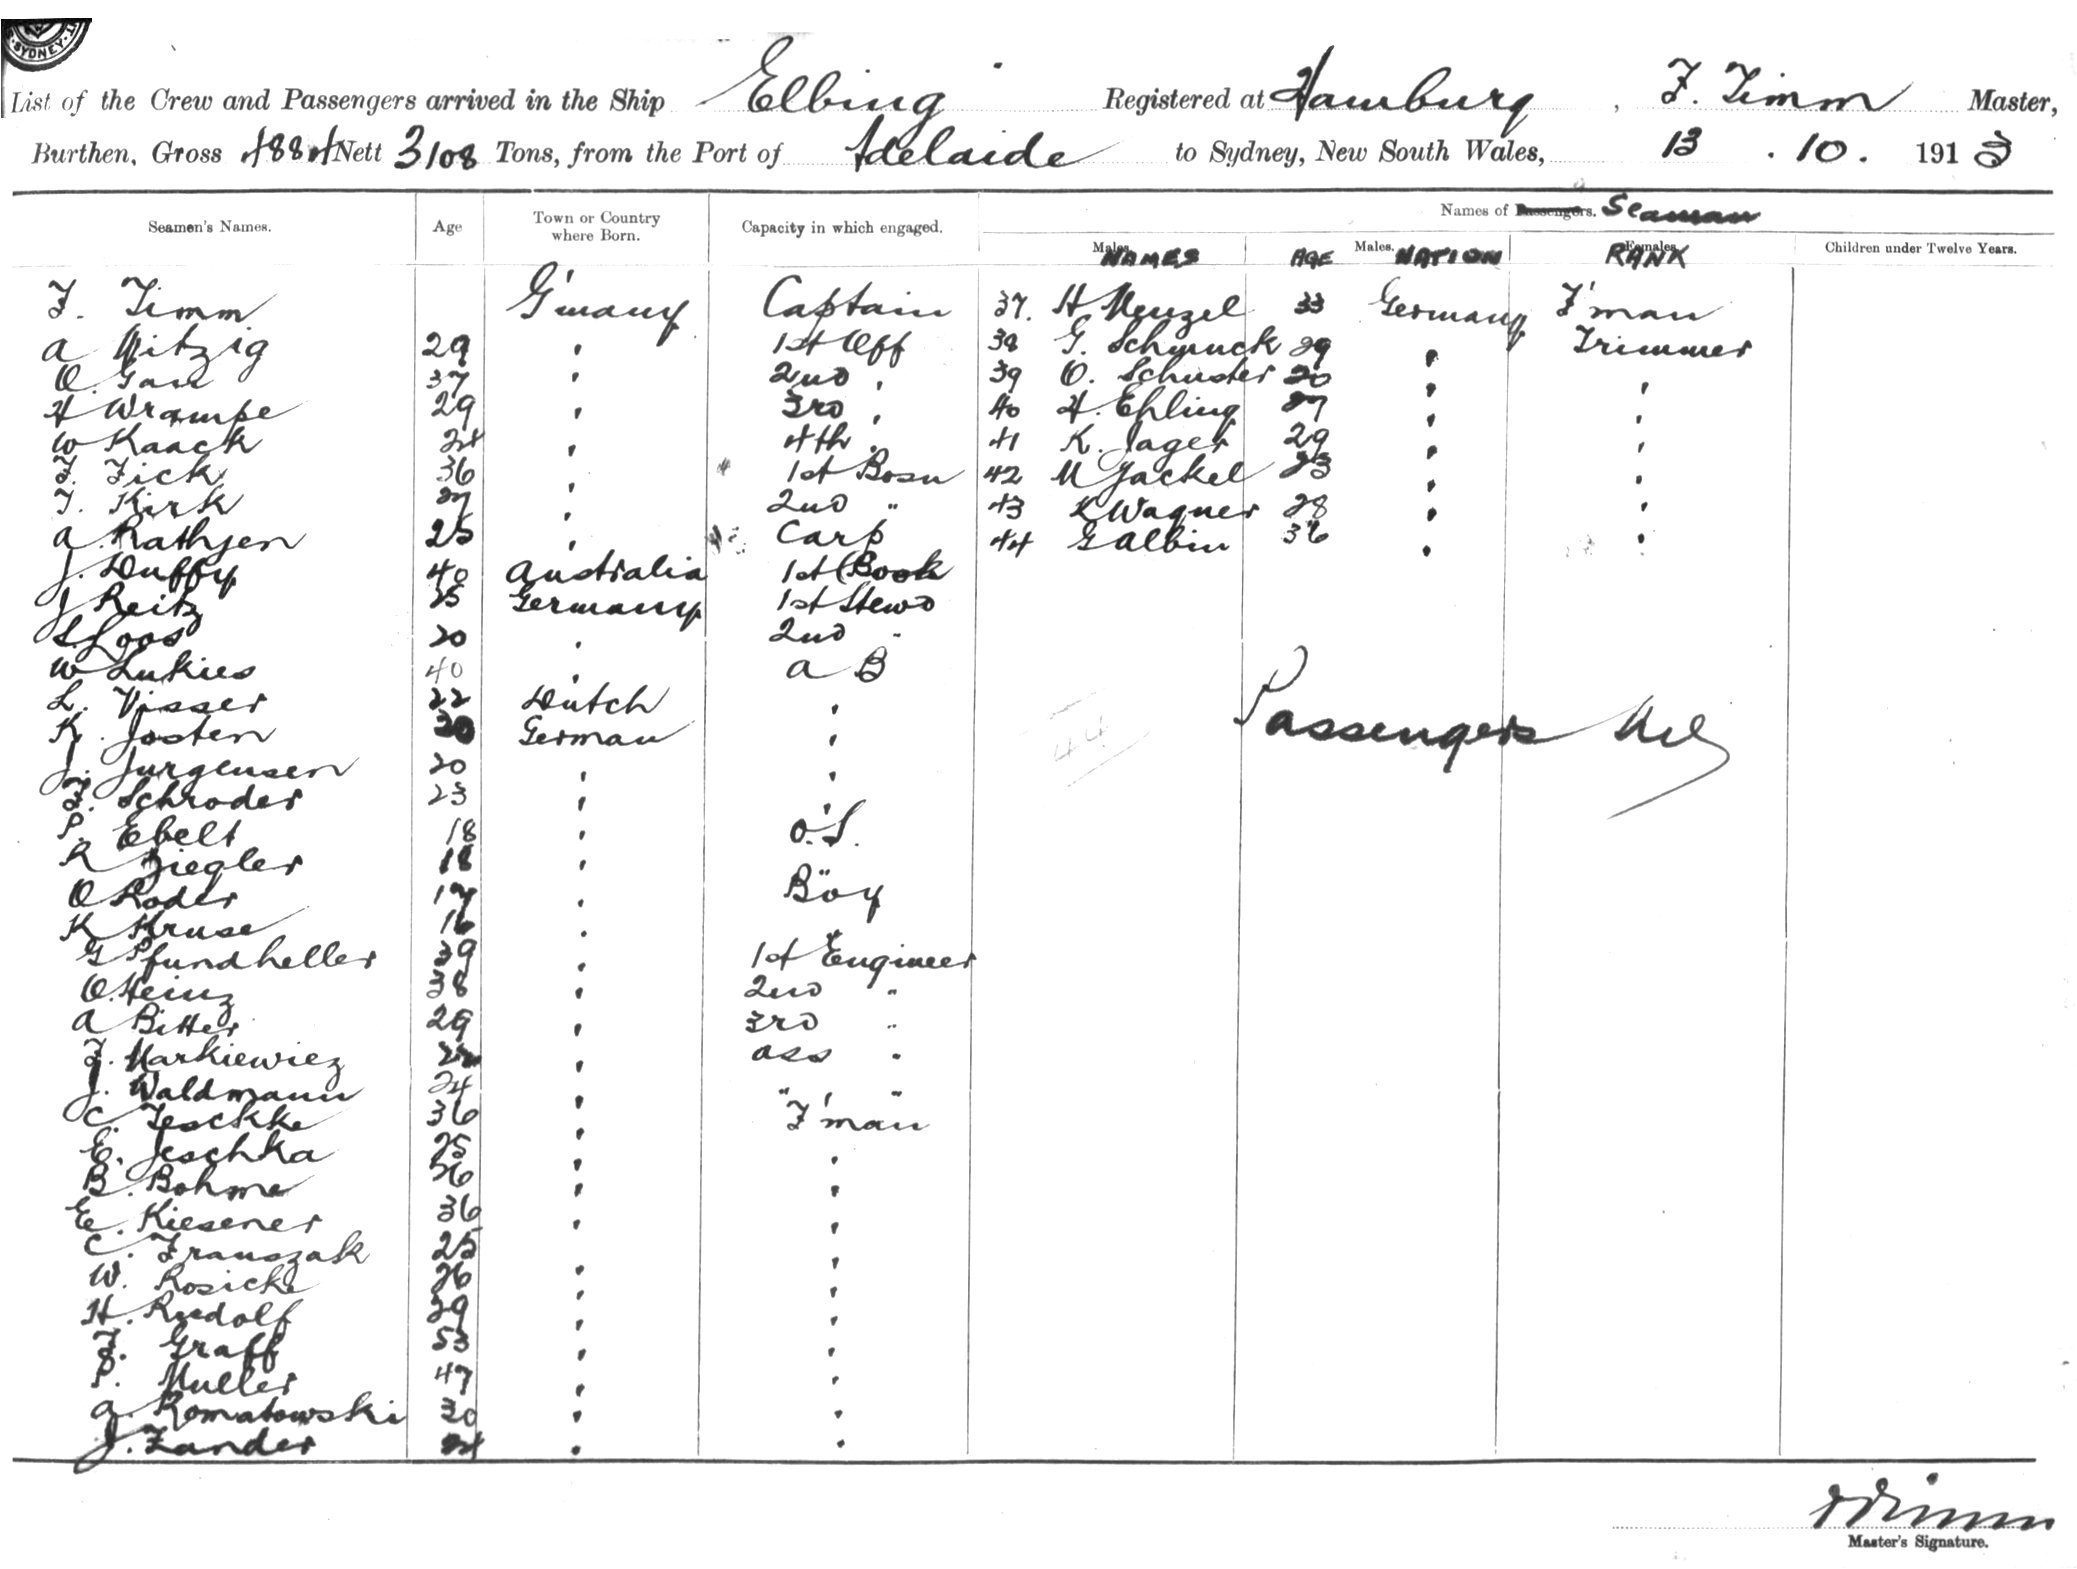 SYDNEY
List of the Crew and Passengers arrived in the Ship Elbing Registered at Hamburg, F. Timm Master,
Burthen, Gross 4884 Nett 3108 Tons, from the Port of Adelaide to Sydney, New South Wales, 13 . 10 . 1913
Names of Passengers. Seaman
Seamen's Names. Age Town or Country where Born. Capacity in which engaged. Males. NAMES AGE Males. NATION Females. RANK Children under Twelve Years.
F. Timm G'many Captain 37. H Menzel 33 Germany F'man
A Witzig 29 " 1st Off 38 G. Schmuck 29 " Trimmer
O. Gau 37 " 2nd " 39 O. Schuster 20 " "
H Wrampe 29 " 3rd " 40 H. Ehling 27 " "
W Kaack 24 " 4th " 41 K. Jager 29 " "
F. Fick 36 " 1st Bosn 42 M Jackel 23 " "
T. Kirk 27 " 2nd " 43 K Wagner 28 " "
A. Rathjen 25 " Carp 44 G Albin 36 " "
J. Duffy 40 Australia 1st Cook
J. Reitz 25 Germany 1st Stewd
L Loos 20 " 2nd "
W Lukies 40 " A B
L. Visser 22 Dutch "
K. Josten 30 German "
Passengers Nil
44
J. Jurgensen 20 " "
F. Schroder 23 " "
P. Ebelt 18 " O.S.
R Ziegler 18 " "
O Roder 17 " Boy
K Kruse 16 " "
G Pfundheller 39 " 1st Engineer
O. Heinz 38 " 2nd "
A Bitter 29 " 3rd "
F. Markiewiez 22 " ass "
J. Waldmann 24 " " "
C. Jeschke 36 " F'man
E. Jeschka 25 " "
B. Bohme 26 " "
E. Kiesener 36 " "
C. Franszak 25 " "
W. Rosicke 26 " "
H. Rudolf 29 " "
F. Graff 53 " "
P. Muller 47 " "
A. Romatowski 30 " "
J. Zander 24 " "
Master's Signature.